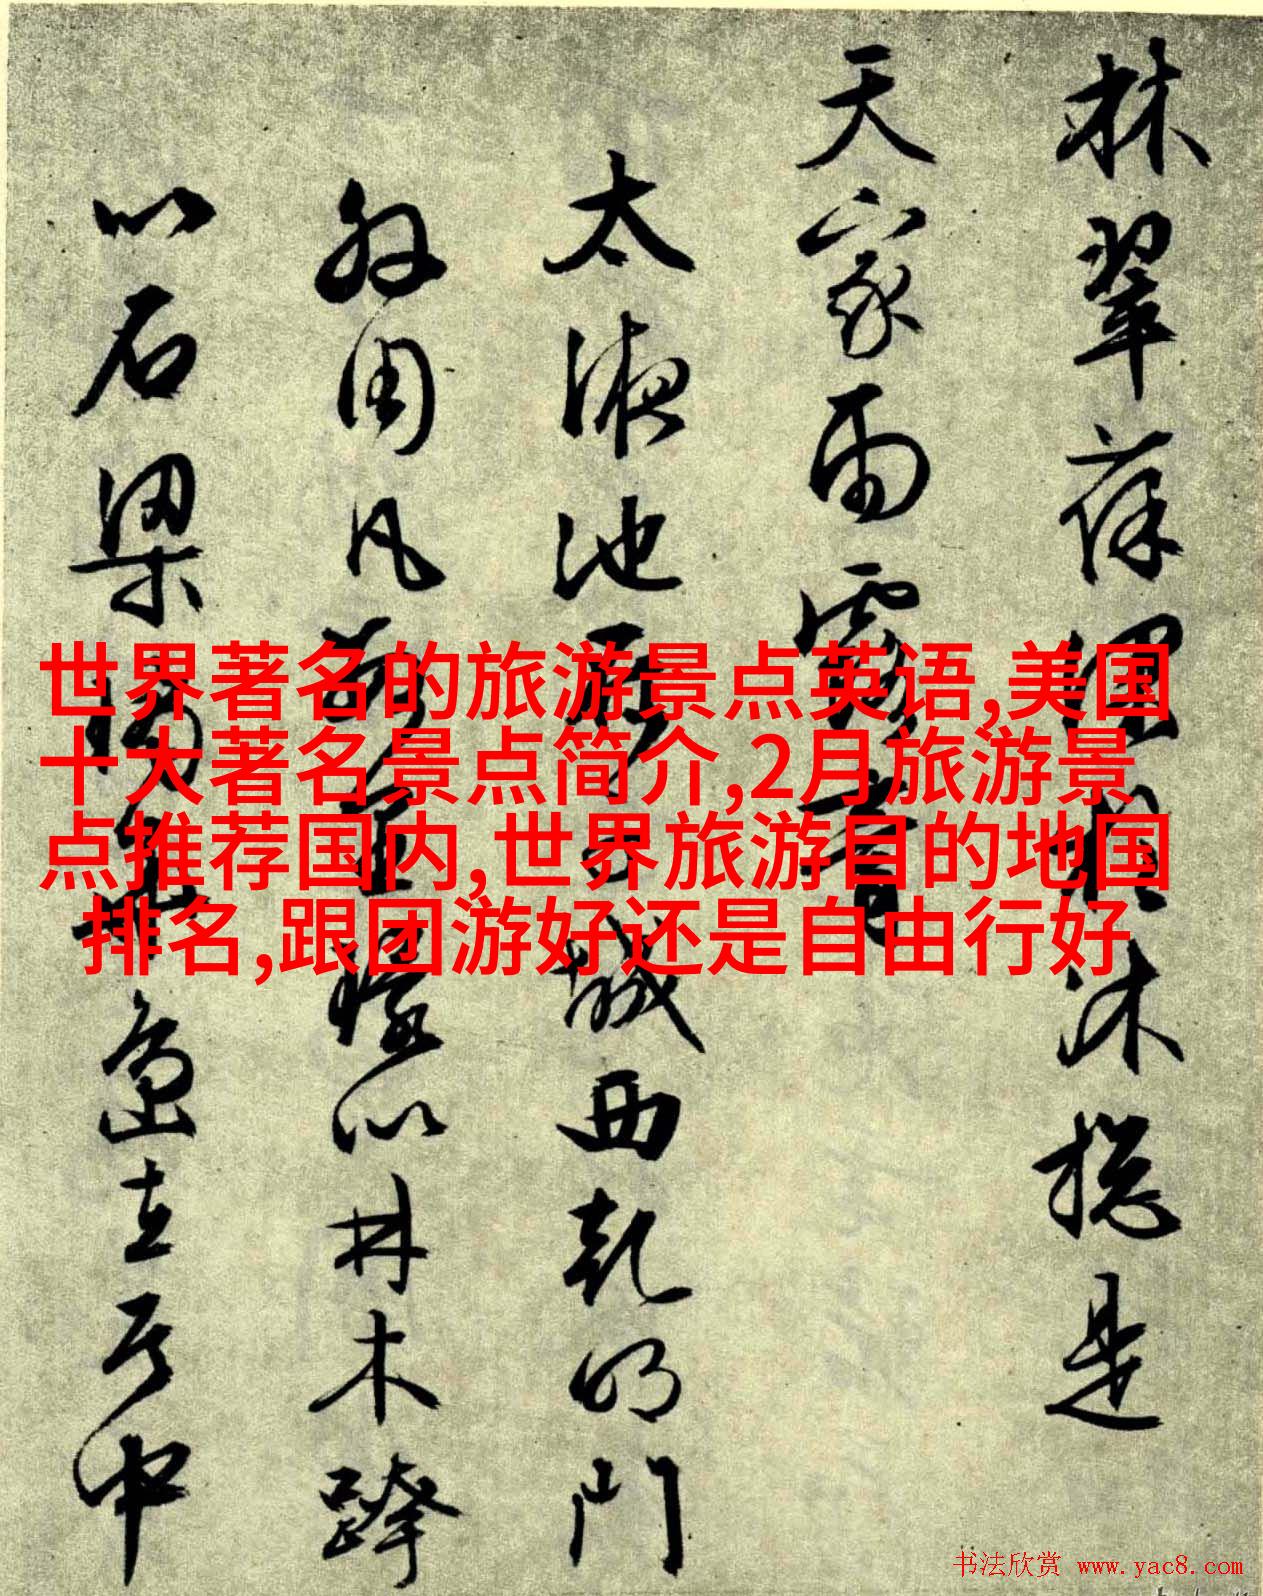 林翠葆沐總是
天家雨露
太液池城西乾明門
外周凡以林木跨
以石梁
世界著名的旅游景点英语,美国
十大著名景点简介,2月旅游景
点推荐国内,世界旅游目的地国
排名,跟团游好还是自由行好
书法欣赏 www.yac8.com